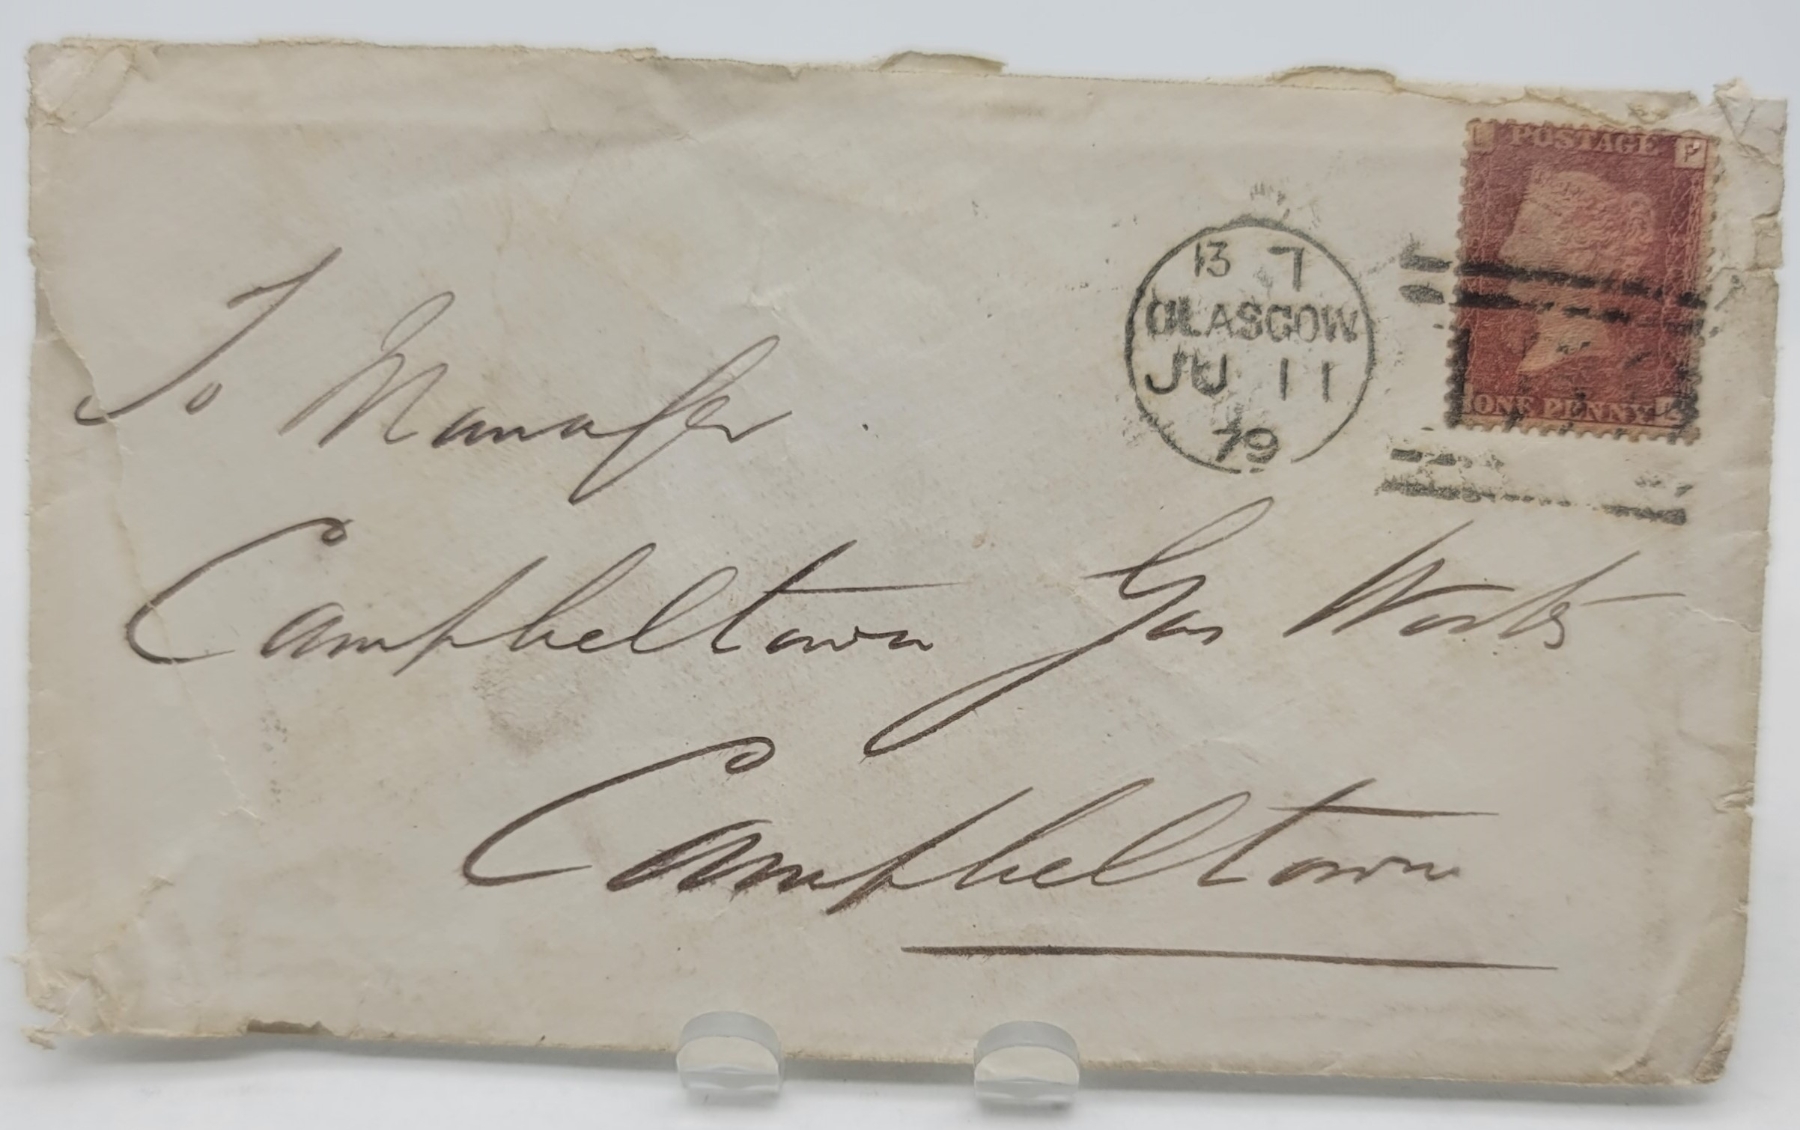 POSTAGE
P
ONE PENNY
13 7
GLASGOW
JU 11
79
To Manager
Campbeltown Gas Works
Campbeltown